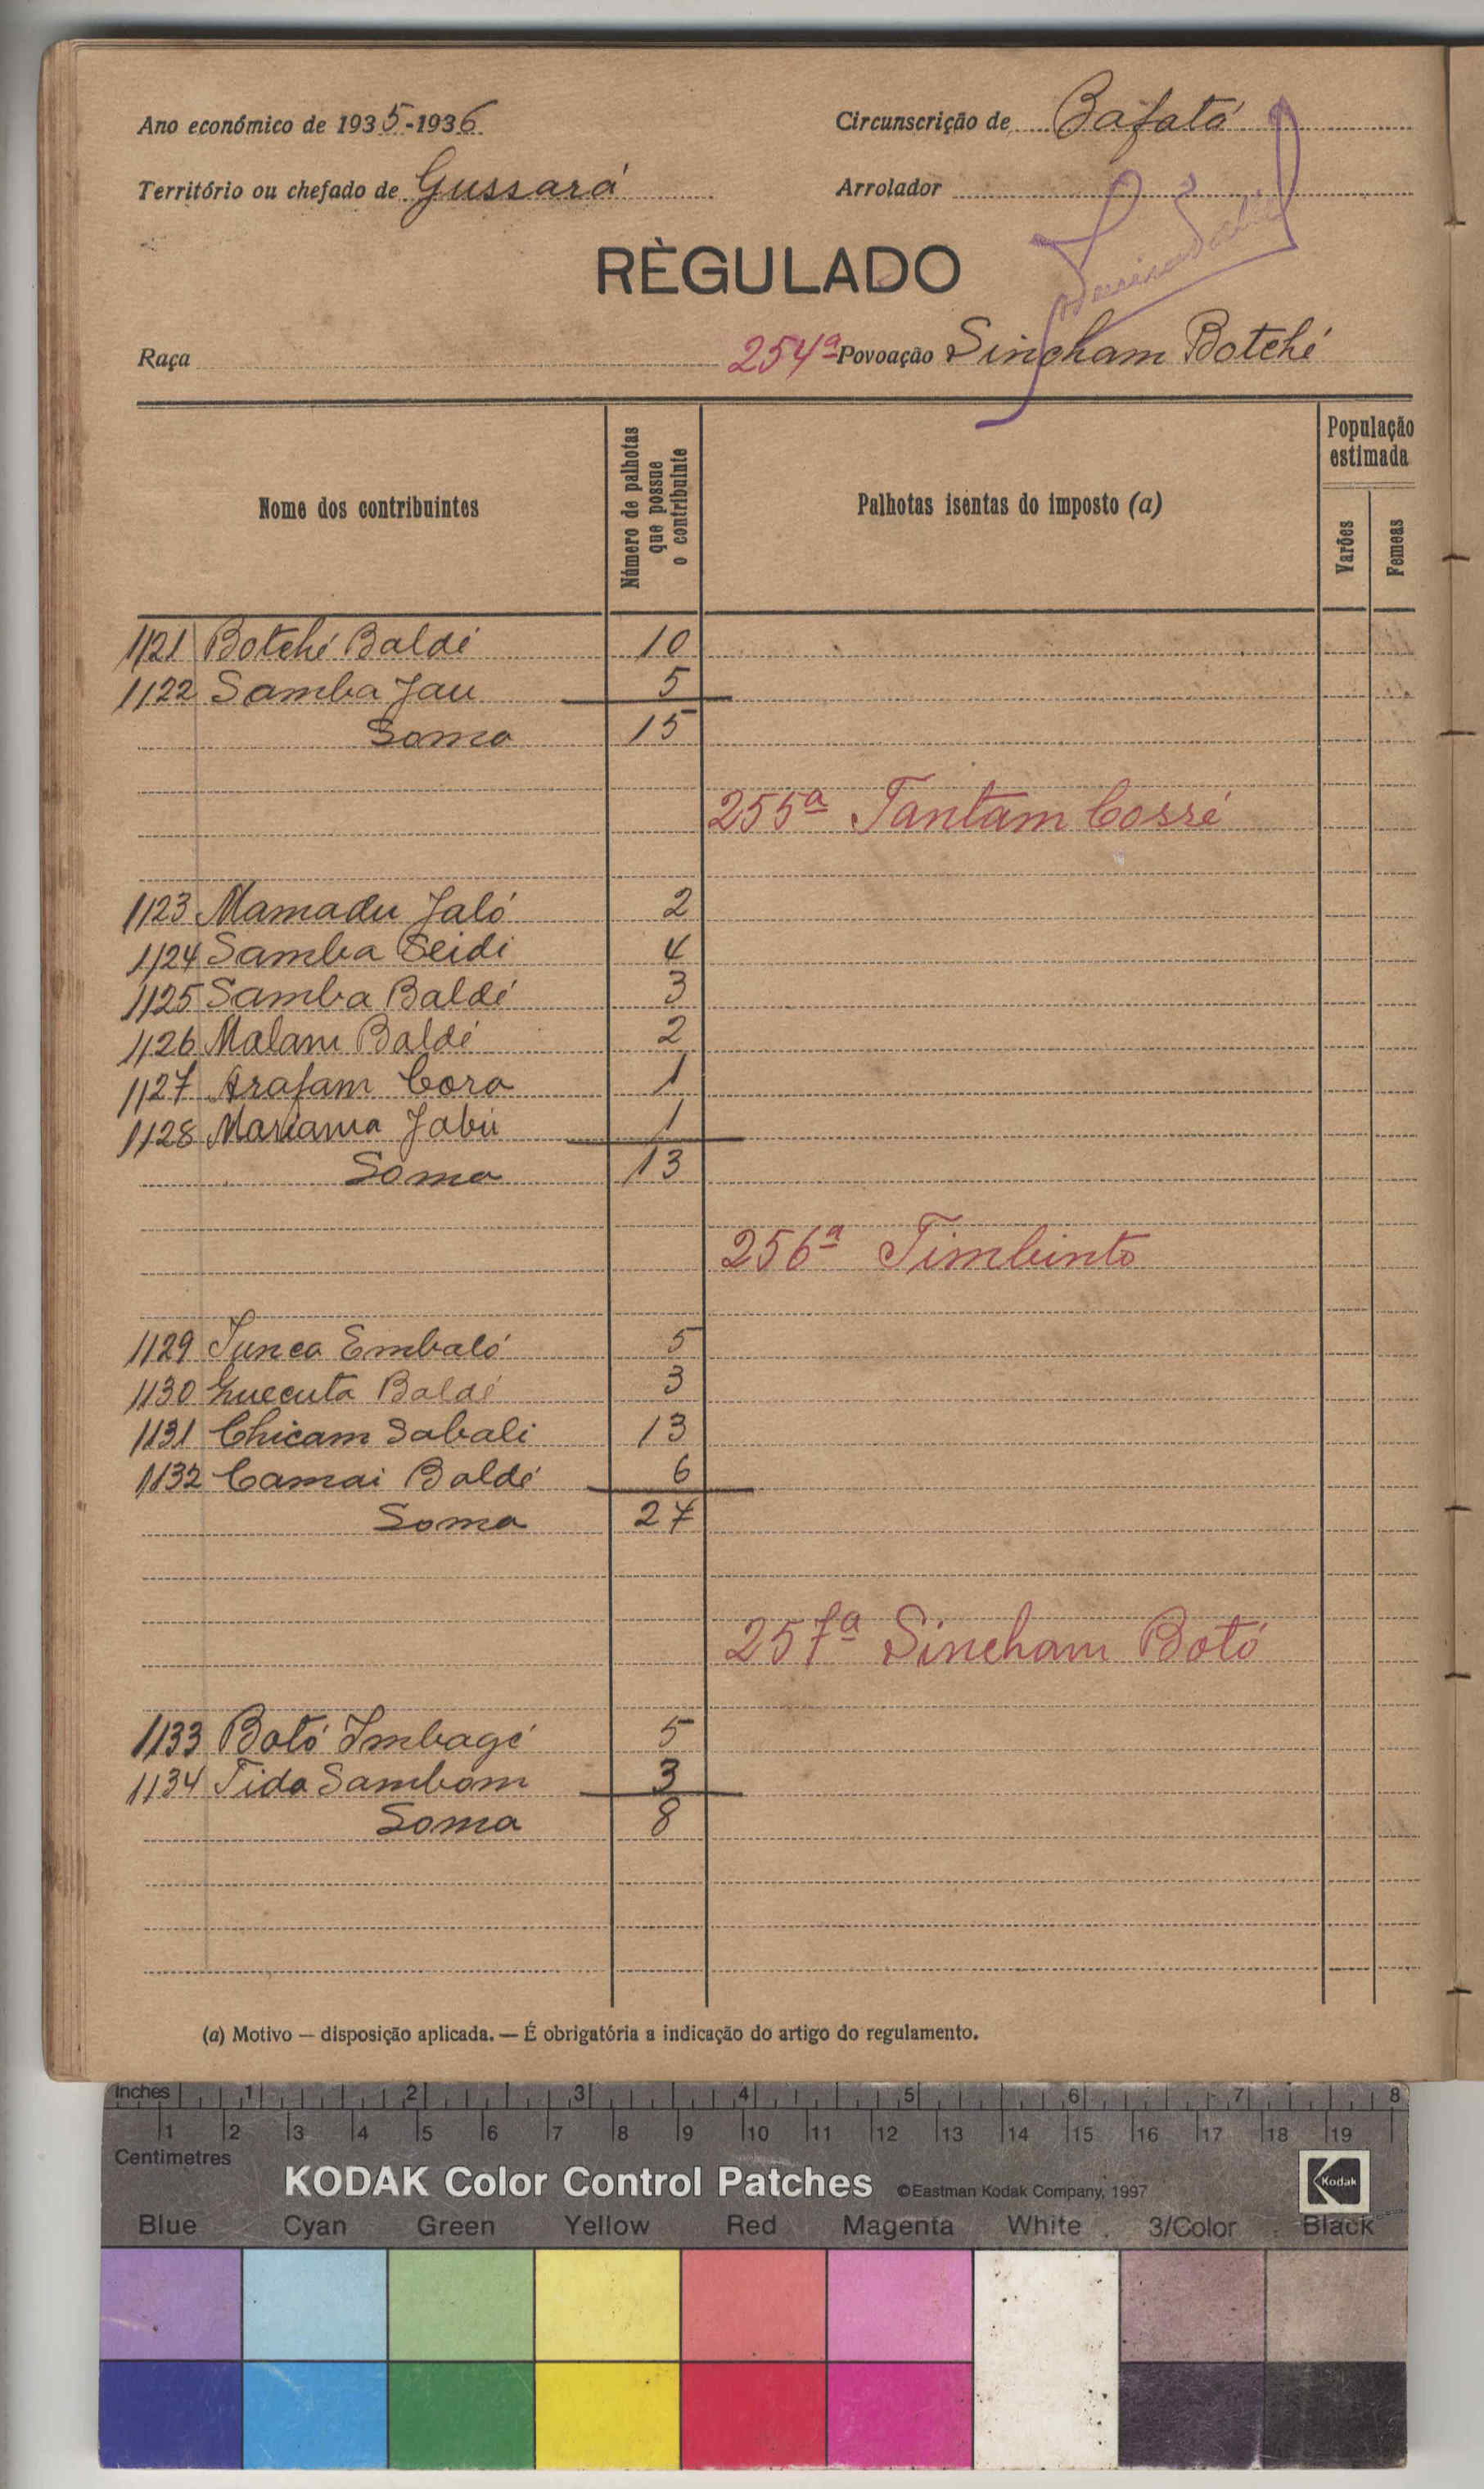 Ano económico de 1935-1936
Circunscrição de Bafatá
Território ou chefado de Gussará
Arrolador
RÈGULADO
Raça
254ª Povoação Sincham Botché
Nome dos contribuintes
Número de palhotas que possue o contribuinte
Palhotas isentas do imposto (a)
População estimada
Varões
Femeas
1121 Botché Baldé 10
1122 Samba Jau 5
Soma 15
255ª Tantam Cossé
1123 Mamadu Jaló 2
1124 Samba Seidi 4
1125 Samba Baldé 3
1126 Malam Baldé 2
1127 Arafam Cora 1
1128 Mariama Jabú 1
Soma 13
256ª Timbinto
1129 Junca Embaló 5
1130 Quecuta Baldé 3
1131 Chicam Sabali 13
1132 Camai Baldé 6
Soma 27
257ª Sincham Botó
1133 Botó Imbagé 5
1134 Tida Sambom 3
Soma 8
(a) Motivo — disposição aplicada. — É obrigatória a indicação do artigo do regulamento.
Inches 1 2 3 4 5 6 7 8
1 2 3 4 5 6 7 8 9 10 11 12 13 14 15 16 17 18 19
Centimetres
KODAK Color Control Patches ©Eastman Kodak Company, 1997
Kodak
Blue Cyan Green Yellow Red Magenta White 3/Color Black